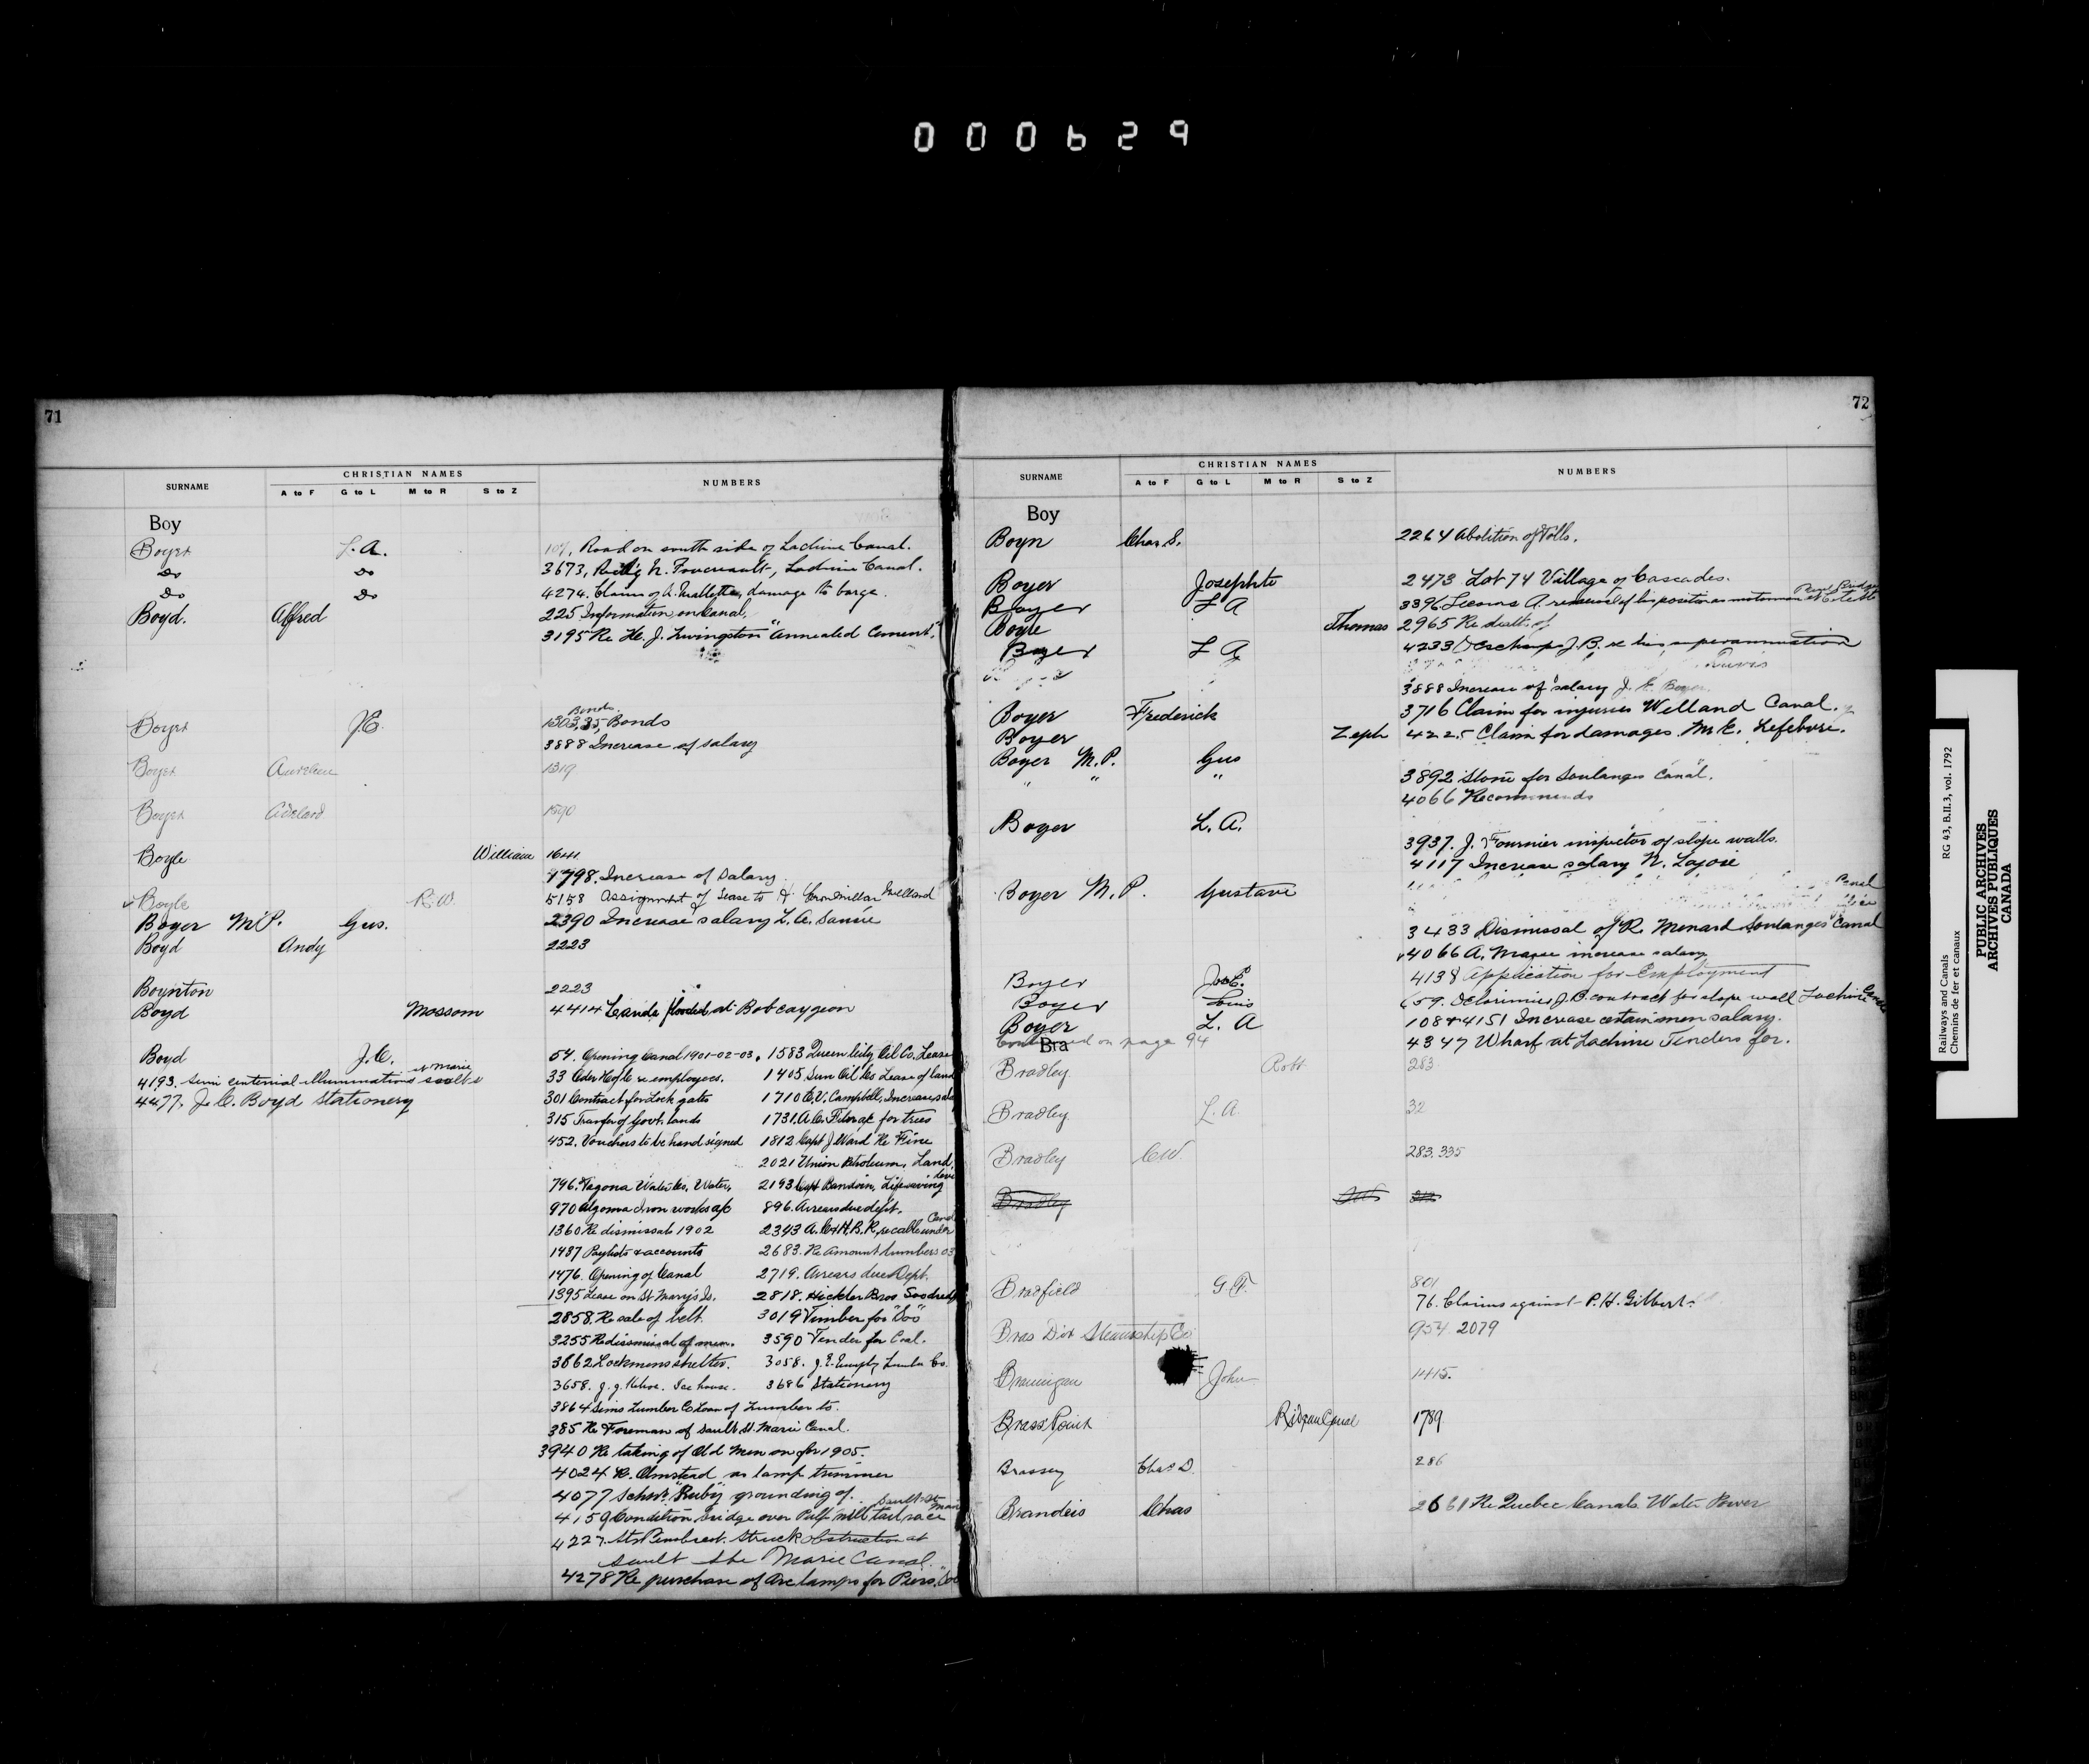 000629
71
CHRISTIAN NAMES
SURNAME A to F G to L M to R S to Z NUMBERS
Boy
Boyer L.A. 107, Road on south side of Lachine Canal.
Do Do 3673, N. Foucreault, Lachine Canal.
Do Do 4274. Claim of A. Mallette, damage to barge.
Boyd. Alfred 225 Information on Canal.
3195 Re H. J. Livingston "Annealed Cement."
Bonds.
Boyer J.E. Bonds
3888 Increase of salary
Boyer Aurelien 1319
Boyer Adelard 1590
Boyle William 1641
4798. Increase of Salary.
Boyle R.W. 5158 Assignment of Lease to Welland
Boyer M.P. Gus. 2390 Increase salary L. A. Sauvé
Boyd Andy 2223
Boynton 2223
Boyd Mossom 4414 Lands flooded at Bobcaygeon
Boyd J.C. 54. Opening Canal 1901-02-03. 1583 Queen City Oil Co. Lease
4193. Semi centenial illuminations sault s
st Marie
33 re employees. 1405 Sun Oil Co Lease of land
4477. J. C. Boyd Stationery
301 Contract for Lock gates 1710 C.V. Campbell, Increase
315 Transfer of Govt. lands 1731 A.C. for trees
452. Vouchers to be hand signed 1812 Capt J Ward Re Fine
2021 Union Petroleum, Land
796. Tagona Water Co. Water, 2193 Capt Bandoin, Lifesaving
970 Algoma Iron works a/c 896. Arrears due dept.
1360 Re dismissals 1902 2343 A. C. & H. B. R. re cable under Canal
1437 Paylists & accounts 2683. Re Amount
1476. Opening of Canal 2719. Arrears due Dept.
1395 Lease on St. Mary's Is. 2818. Hickler Bros Soo
2858. Re sale of belt. 3019 Timber for "Soo"
3255 Re dismissal of men. 3590 Tender for Coal.
3662 Lockmens shelter. 3058. J. E. Lumber Co.
3658. J. J. Kehoe. Ice house. 3686 Stationery
3864 Sims Lumber Co Loan of Lumber to.
385 Re Foreman of Sault St. Marie Canal.
3940 Re taking of Old Men on for 1905.
4024 Olmstead as lamp trimmer
4077 Schnr. "Ruby" grounding of.
4159 Condition bridge over Pulp mill tail race
4227. Str struck obstruction at
Sault Ste Marie Canal.
4278 Re purchase of Arc lamps for Piers. "Soo
72
CHRISTIAN NAMES
SURNAME A to F G to L M to R S to Z NUMBERS
Boy
Boyn Chas. S. 2264 Abolition of Tolls.
Boyer Josephte 2473 Lot 74 Village of Cascades.
Boyer L A 3396 A. removal of his position as motorman
Boyle Thomas 2965 Re death of
Boyer L A 4233 Deschamps J. B. re his superannuation
3888 Increase of salary J. E. Boyer.
Boyer Frederick 3716 Claim for injuries Welland Canal.
Boyer Zeph 4225 Claim for damages. Mr E. Lefebvre.
Boyer M.P. Gus
" " " 3892 Stone for Soulanges Canal.
4066 Recommends
Boyer L. A.
3937. J. Fournier inspector of slope walls.
4117 Increase salary N. Lajoie
Boyer M. P. Gustave
3433 Dismissal of R. Menard Soulanges Canal
4066 A. increase salary
Boyer 4138 Application for Employment
Boyer Louis 659. Delorimier J. B. contract for slope wall Lachine Canal
Boyer L. A 108 & 4151 Increase certain men salary.
Continued on page 94 4347 Wharf at Lachine Tenders for.
Bra
Bradley Robt 283
Bradley L. A. 32
Bradley C.W. 283. 335
Bradley
Bradfield G. F. 801
76. Claims against P. H. Gilbert.
Bras D'or Steamship Co 954. 2079
Brannigan John 1415.
Brass Point Rideau Canal 1789.
Brassey Chas D. 286
Brandeis Chas 2661 Re Quebec Canals Water Power
Railways and Canals RG 43, B.II.3, vol. 1792
Chemins de fer et canaux
PUBLIC ARCHIVES
ARCHIVES PUBLIQUES
CANADA